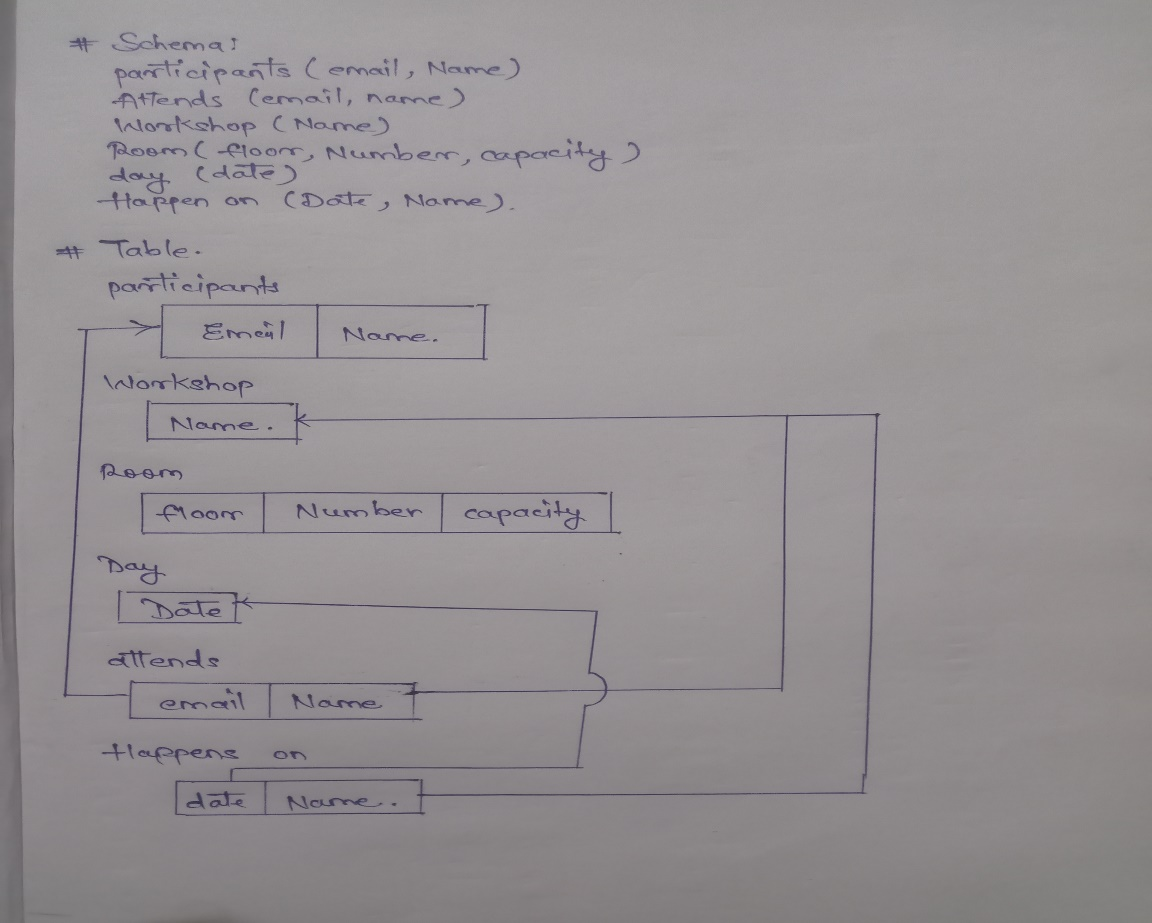 # Schema:
participants (email, Name)
Attends (email, name)
Workshop (Name)
Room (floor, Number, capacity)
day (date)
Happen on (Date, Name).
# Table.
participants
Email Name.
Workshop
Name.
Room
floor Number capacity
Day
Date
attends
email Name
Happens on
date Name.